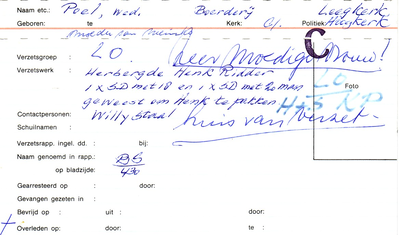 Naam etc.: Poel, wed. Boerderij Leegkerk
Geboren: te Kerk: Gf. Politiek: Hoogkerk
moeder van
Verzetsgroep : LO. Zeer Moedige Vrouw!
Verzetswerk : Herbergde Henk Ridder C LO
1 x SD met 18 en 1 x SD met 20 man Foto
geweest om Henk te pakken. KP
Contactpersonen: Willy Staal
Schuilnamen : huis van verzet.
Verzetsrapp. ingel. dd. : bij:
Naam genoemd in rapp.: BS
op bladzijde: 430
Gearresteerd op : door:
Gevangen gezeten in :
Bevrijd op : uit : door:
Overleden op: : door: te :